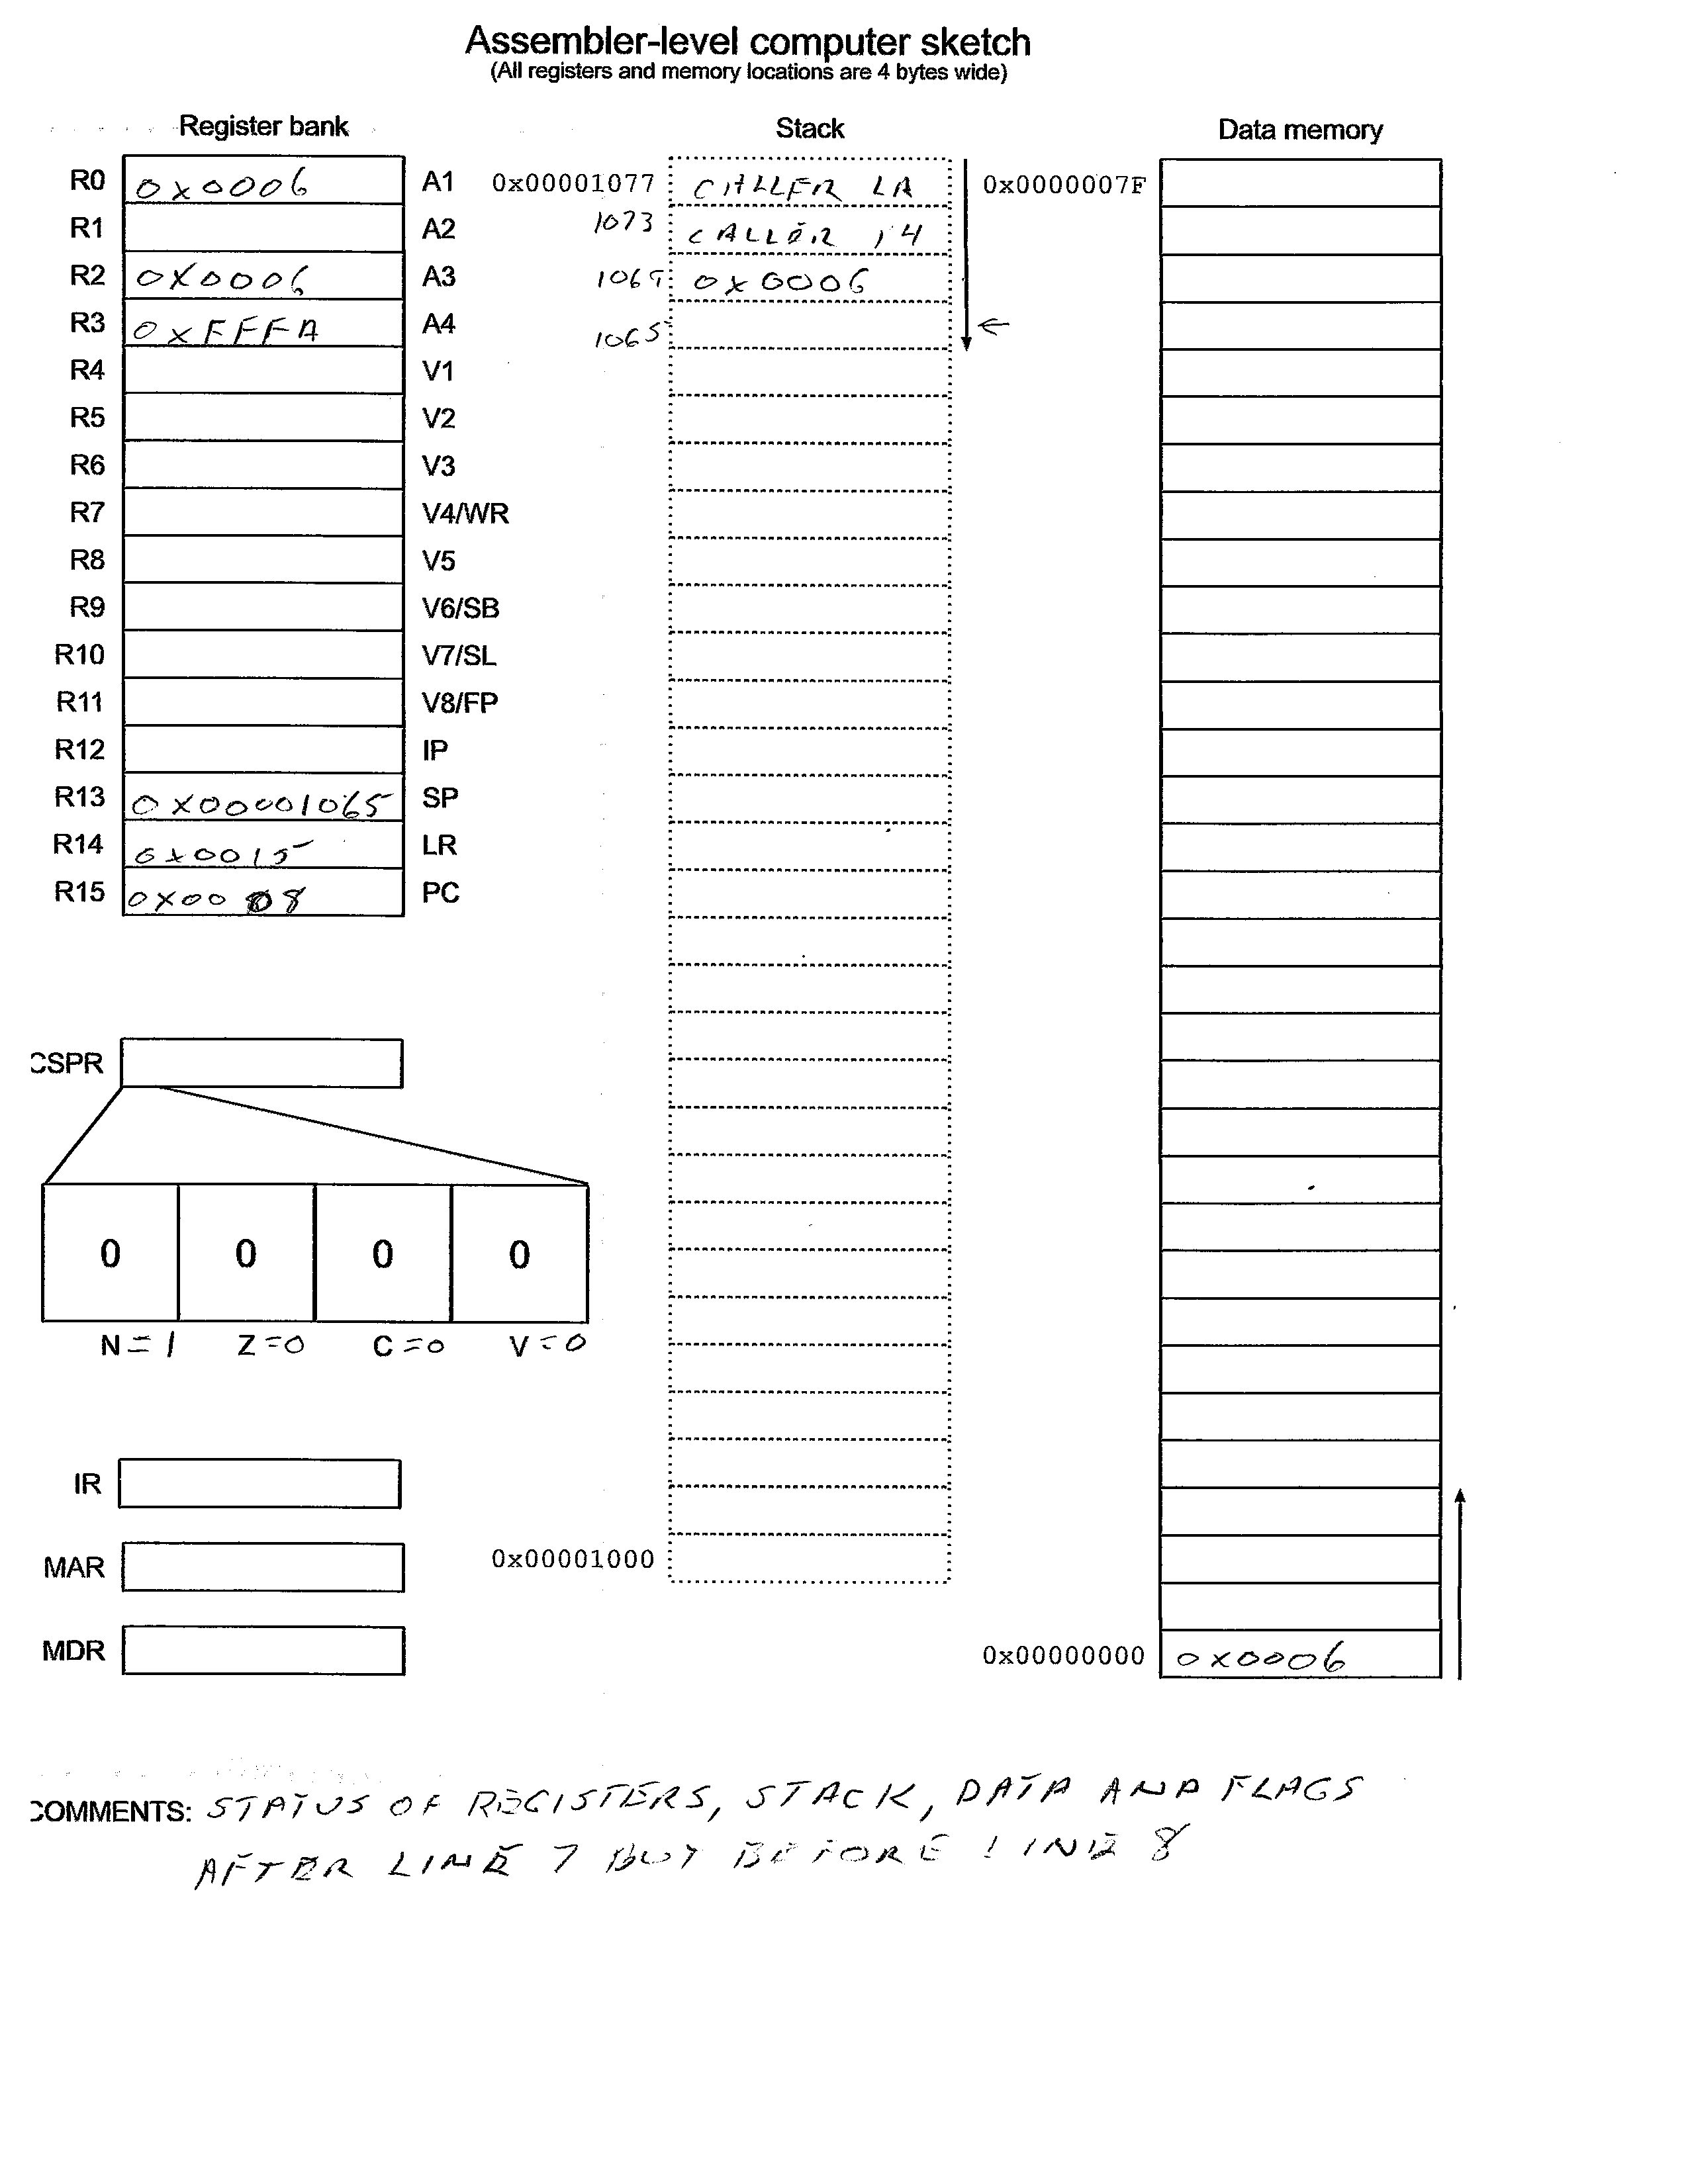 Assembler-level computer sketch
(All registers and memory locations are 4 bytes wide)
Register bank
R0 0x0006 A1
R1 A2
R2 0x0006 A3
R3 0xFFFA A4
R4 V1
R5 V2
R6 V3
R7 V4/WR
R8 V5
R9 V6/SB
R10 V7/SL
R11 V8/FP
R12 IP
R13 0x00001065 SP
R14 0x0015 LR
R15 0x0008 PC
CSPR
0 0 0 0
N=1 Z=0 C=0 V=0
IR
MAR
MDR
Stack
0x00001077 CALLER
1073 CALLER
1069 0x0006
1065 ←
0x00001000
Data memory
0x0000007F
0x00000000 0x0006
COMMENTS: STATUS OF REGISTERS, STACK, DATA AND FLAGS
AFTER LINE 7 BUT BEFORE LINE 8